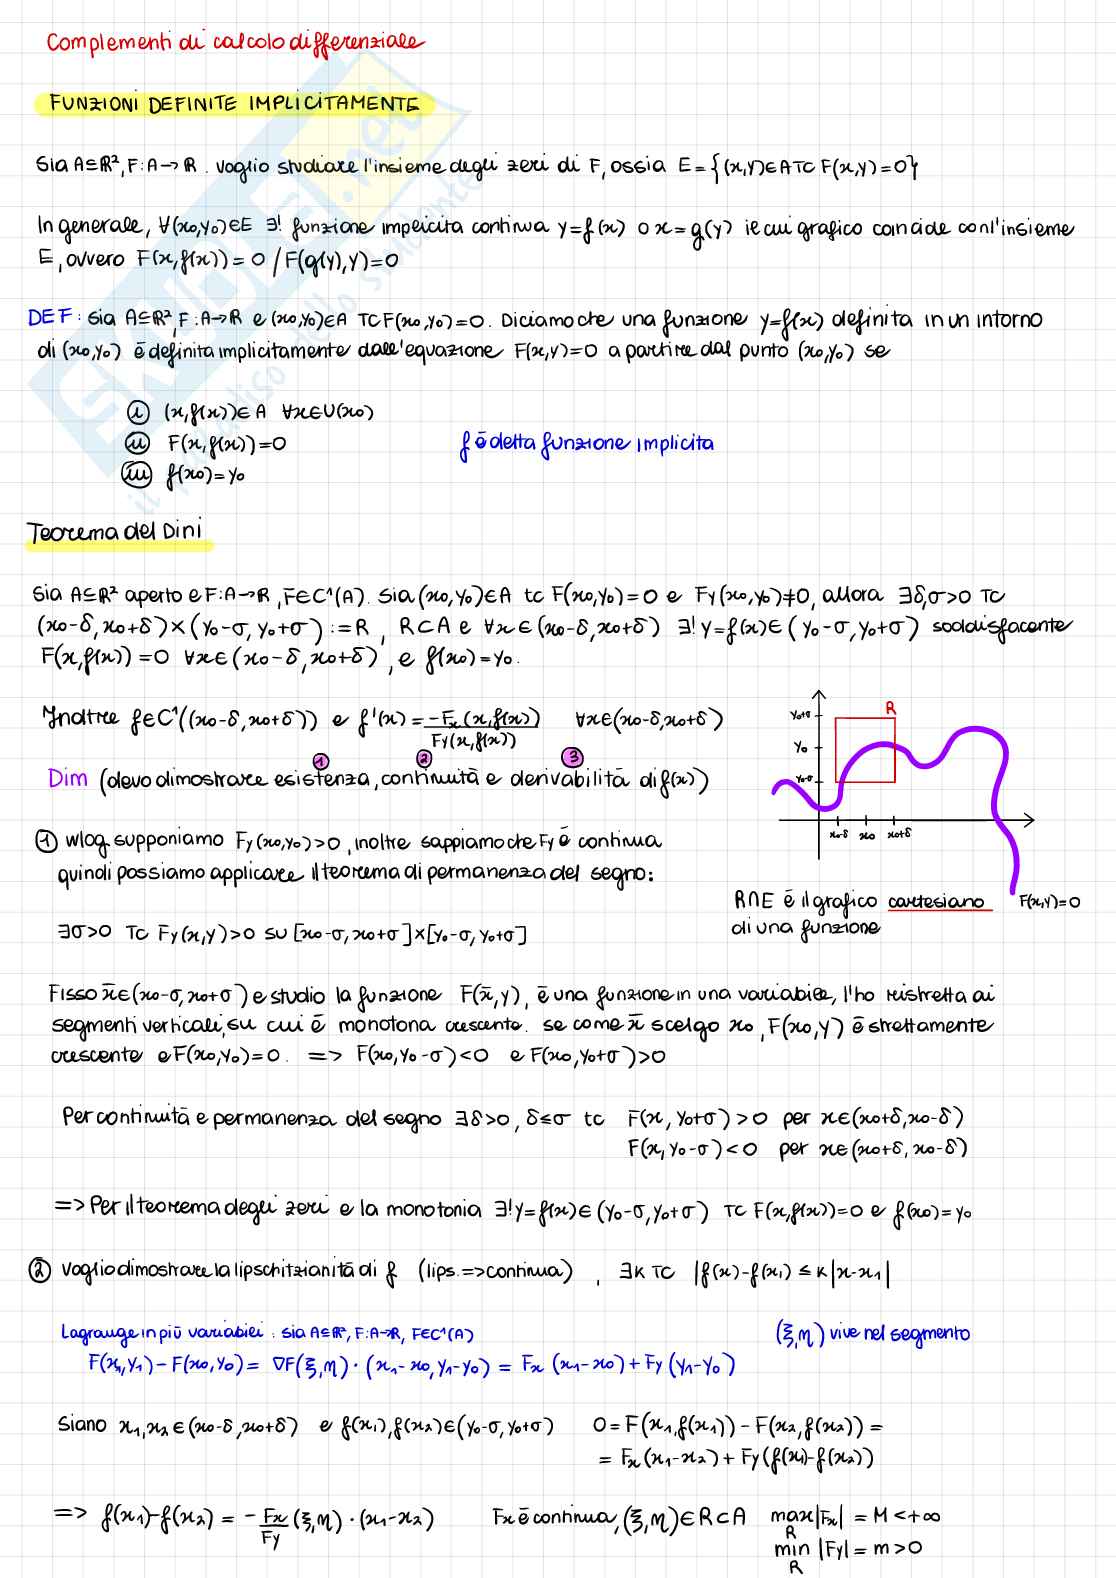 Complementi di calcolo differenziale
FUNZIONI DEFINITE IMPLICITAMENTE
Sia A⊆ℝ², F:A→ℝ. voglio studiare l'insieme degli zeri di F, ossia E={(x,y)∈A TC F(x,y)=0}
In generale, ∀(x₀,y₀)∈E ∃! funzione implicita continua y=f(x) o x=g(y) il cui grafico coincide con l'insieme
E, ovvero F(x,f(x))=0 / F(g(y),y)=0
DEF: Sia A⊆ℝ², F:A→ℝ e (x₀,y₀)∈A TC F(x₀,y₀)=0. Diciamo che una funzione y=f(x) definita in un intorno
di (x₀,y₀) è definita implicitamente dall'equazione F(x,y)=0 a partire dal punto (x₀,y₀) se
(i) (x,f(x))∈A ∀x∈U(x₀)
(ii) F(x,f(x))=0 f è detta funzione implicita
(iii) f(x₀)=y₀
Teorema del Dini
Sia A⊆ℝ² aperto e F:A→ℝ, F∈C¹(A). Sia (x₀,y₀)∈A tc F(x₀,y₀)=0 e Fy(x₀,y₀)≠0, allora ∃δ,σ>0 TC
(x₀-δ,x₀+δ)×(y₀-σ,y₀+σ):=R, R⊂A e ∀x∈(x₀-δ,x₀+δ) ∃!y=f(x)∈(y₀-σ,y₀+σ) soddisfacente
F(x,f(x))=0 ∀x∈(x₀-δ,x₀+δ), e f(x₀)=y₀.
Inoltre f∈C¹((x₀-δ,x₀+δ)) e f'(x)= -Fx(x,f(x))/Fy(x,f(x)) ∀x∈(x₀-δ,x₀+δ)
1 2 3
Dim (devo dimostrare esistenza, continuità e derivabilità di f(x))
R
y₀+σ
y₀
y₀-σ
x₀-δ x₀ x₀+δ
F(x,y)=0
R∩E è il grafico cartesiano
di una funzione
① wlog supponiamo Fy(x₀,y₀)>0, inoltre sappiamo che Fy è continua
quindi possiamo applicare il teorema di permanenza del segno:
∃σ>0 TC Fy(x,y)>0 su [x₀-σ,x₀+σ]×[y₀-σ,y₀+σ]
Fisso x̄∈(x₀-σ,x₀+σ) e studio la funzione F(x̄,y), è una funzione in una variabile, l'ho ristretta ai
segmenti verticali, su cui è monotona crescente. se come x̄ scelgo x₀, F(x₀,y) è strettamente
crescente e F(x₀,y₀)=0. => F(x₀,y₀-σ)<0 e F(x₀,y₀+σ)>0
Per continuità e permanenza del segno ∃δ>0, δ≤σ tc F(x,y₀+σ)>0 per x∈(x₀+δ,x₀-δ)
F(x,y₀-σ)<0 per x∈(x₀+δ,x₀-δ)
=> Per il teorema degli zeri e la monotonia ∃!y=f(x)∈(y₀-σ,y₀+σ) TC F(x,f(x))=0 e f(x₀)=y₀
② voglio dimostrare la lipschitzianità di f (lips.=>continua), ∃K TC |f(x)-f(x₁)≤K|x-x₁|
Lagrange in più variabili: sia A⊆ℝ², F:A→ℝ, F∈C¹(A) (ξ,η) vive nel segmento
F(x₁,y₁)-F(x₀,y₀)= ∇F(ξ,η)·(x₁-x₀,y₁-y₀) = Fx(x₁-x₀)+Fy(y₁-y₀)
Siano x₁,x₂∈(x₀-δ,x₀+δ) e f(x₁),f(x₂)∈(y₀-σ,y₀+σ) 0=F(x₁,f(x₁))-F(x₂,f(x₂))=
= Fx(x₁-x₂)+Fy(f(x₁)-f(x₂))
=> f(x₁)-f(x₂) = -Fx/Fy (ξ,η)·(x₁-x₂) Fx è continua, (ξ,η)∈R⊂A max R |Fx| = M<+∞
min R |Fy| = m>0
SKUOLA.net
il paradiso dello studente